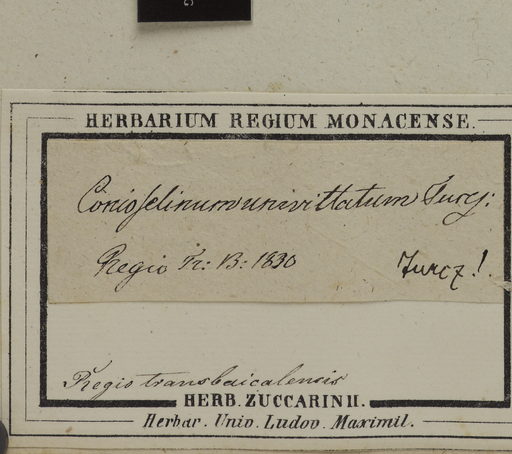 HERBARIUM REGIUM MONACENSE.
Conioselinum univittatum Turcz:
Regio Tr: B: 1830 Turcz!
Regio transbaicalensis
HERB. ZUCCARINII.
Herbar. Univ. Ludov. Maximil.